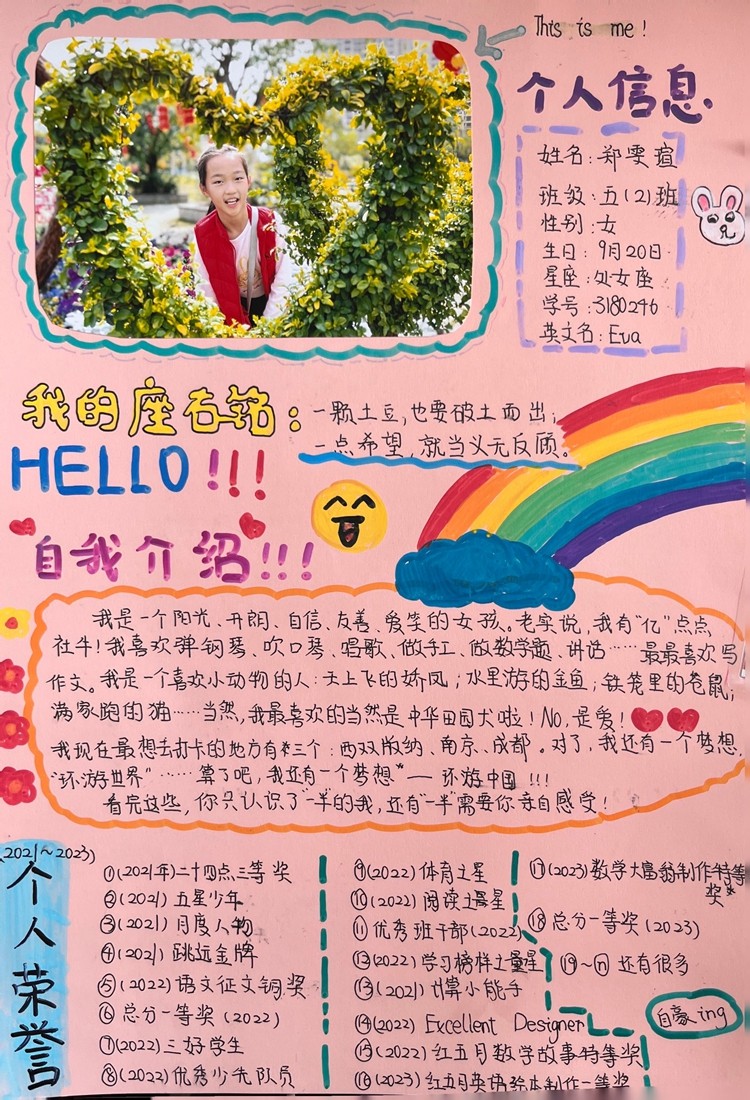 This is me!
个人信息
姓名:郑雯瑄
班级:五(2)班
性别:女
生日:9月20日
星座:处女座
学号:3180246
英文名:Eva
我的座右铭:
一颗土豆,也要破土而出;
一点希望,就当义无反顾。
HELLO!!!
自我介绍!!!
我是一个阳光、开朗、自信、友善、爱笑的女孩。老实说,我有"亿"点点
社牛!我喜欢弹钢琴、吹口琴、唱歌、做手工、做数学题、讲话……最最喜欢写
作文。我是一个喜欢小动物的人:天上飞的娇凤;水里游的金鱼;铁笼里的仓鼠;
满家跑的猫……当然,我最喜欢的当然是中华田园犬啦!No,是爱!
我现在最想去打卡的地方有*三个:西双版纳、南京、成都。对了,我还有一个梦想,
"环游世界"……算了吧,我还有一个梦想*—环游中国!!!
看完这些,你只认识了"一半"的我,还有"一半"需要你亲自感受!
(2021~2023)
个人荣誉
①(2021年)二十四点三等奖
②(2021)五星少年
③(2021)月度人物
④(2021)跳远金牌
⑤(2022)语文征文铜奖
⑥总分一等奖(2022)
⑦(2022)三好学生
⑧(2022)优秀少先队员
⑨(2022)体育之星
⑩(2022)阅读之星
⑪优秀班干部(2022)
⑫(2022)学习榜样之星
⑬(2021)计算小能手
⑭(2022) Excellent Designer
⑮(2022)红五月数学故事特等奖
⑯(2023)红五月英语绘本制作一等奖
⑰(2023)数学大富翁制作特等
奖*
⑱总分一等奖(2023)
⑲~ⓝ还有很多
自豪ing